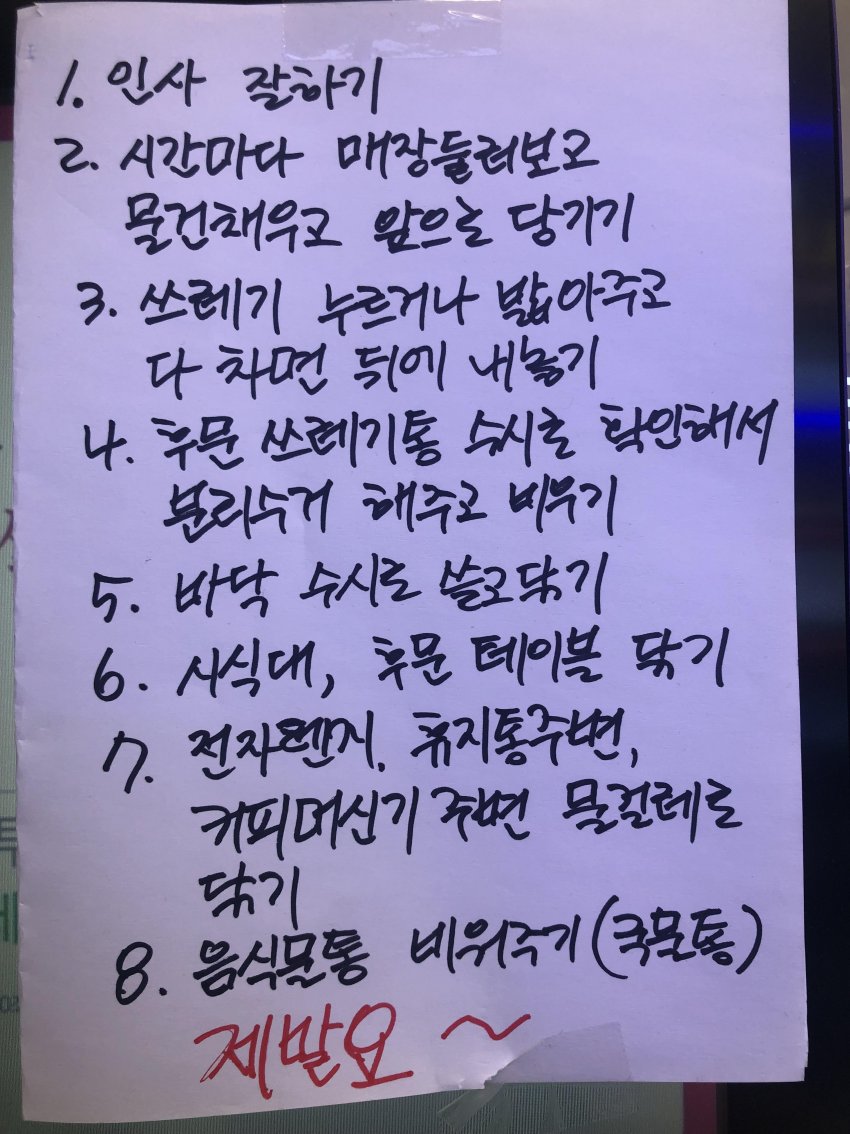 1. 인사 잘하기
2. 시간마다 매장둘러보고
물건채우고 앞으로 당기기
3. 쓰레기 누르거나 밟아주고
다 차면 뒤에 내놓기
4. 후문 쓰레기통 수시로 확인해서
분리수거 해주고 비우기
5. 바닥 수시로 쓸고닦기
6. 시식대, 후문 테이블 닦기
7. 전자렌지, 휴지통주변,
커피머신기 주변 물걸레로
닦기
8. 음식물통 비워주기 (국물통)
제발요~